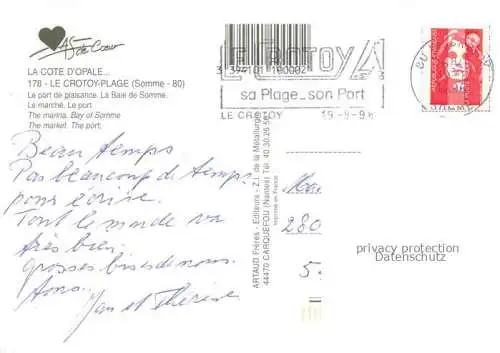 As de Cœur
LA COTE D'OPALE...
178 - LE CROTOY-PLAGE (Somme - 80)
Le port de plaisance. La Baie de Somme.
Le marché. Le port.
The marina. Bay of Somme
The market. The port.
3 394101 180002
LE CROTOY
sa Plage_son Port
LE CROTOY 19-8-9
Beau temps
Pas beaucoup de temps
pour écrire.
Tout le monde va
très bien.
grosses bises de nous
tous.
Jan et Thérèse
ARTAUD Frères - Editeurs - Z.I. de la Métallurgie
44470 CARQUEFOU (Nantes) Tél. 40.30.26.
Imprimé en France
280
5
privacy protection
Datenschutz